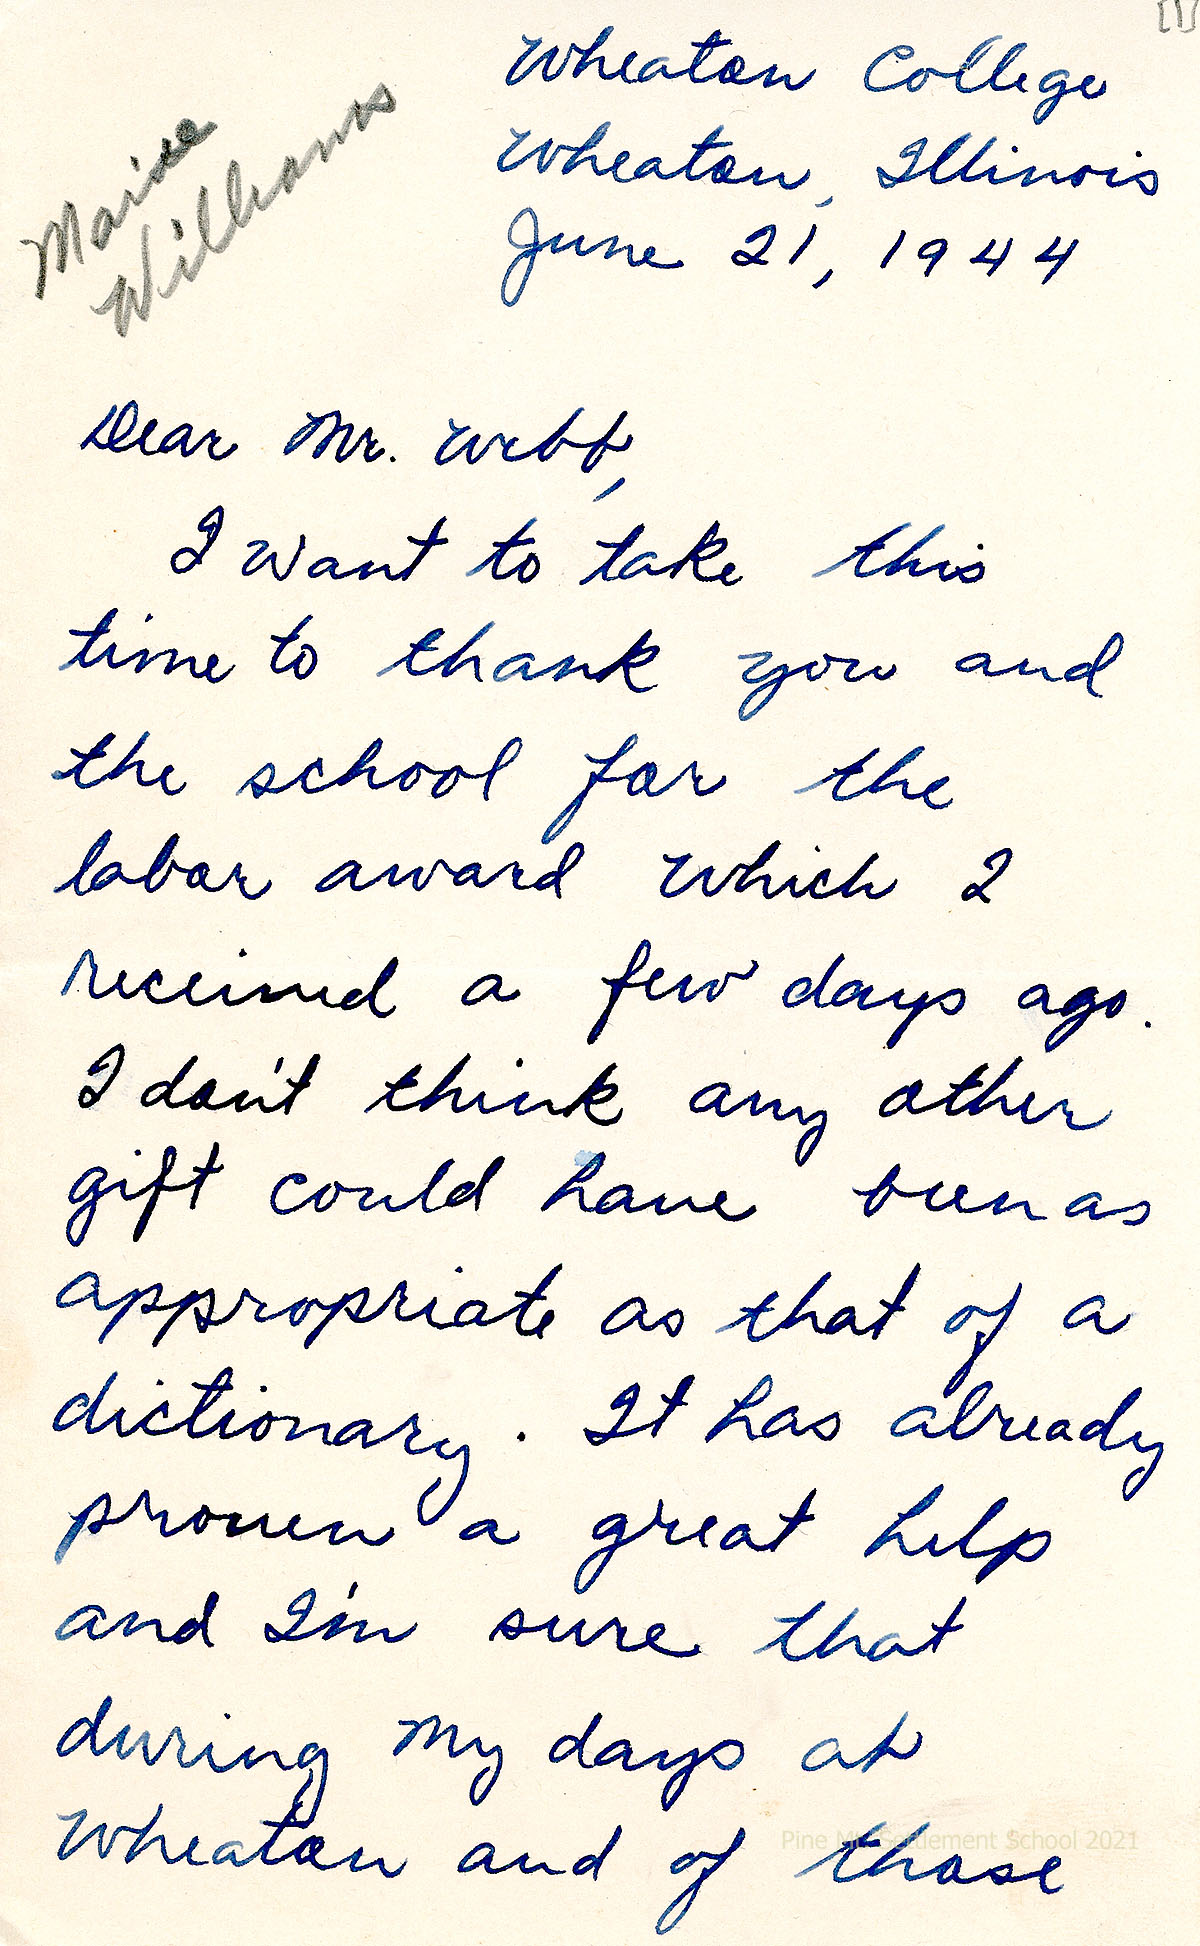 [1]
Wheaton College
Marise
Williams
Wheaton, Illinois
June 21, 1944
Dear Mr. Webb,
I want to take this
time to thank you and
the school for the
labor award which I
received a few days ago.
I don't think any other
gift could have been as
appropriate as that of a
dictionary. It has already
proven a great help
and I'm sure that
during my days at
Wheaton and of those
Pine Mt. Settlement School 2021